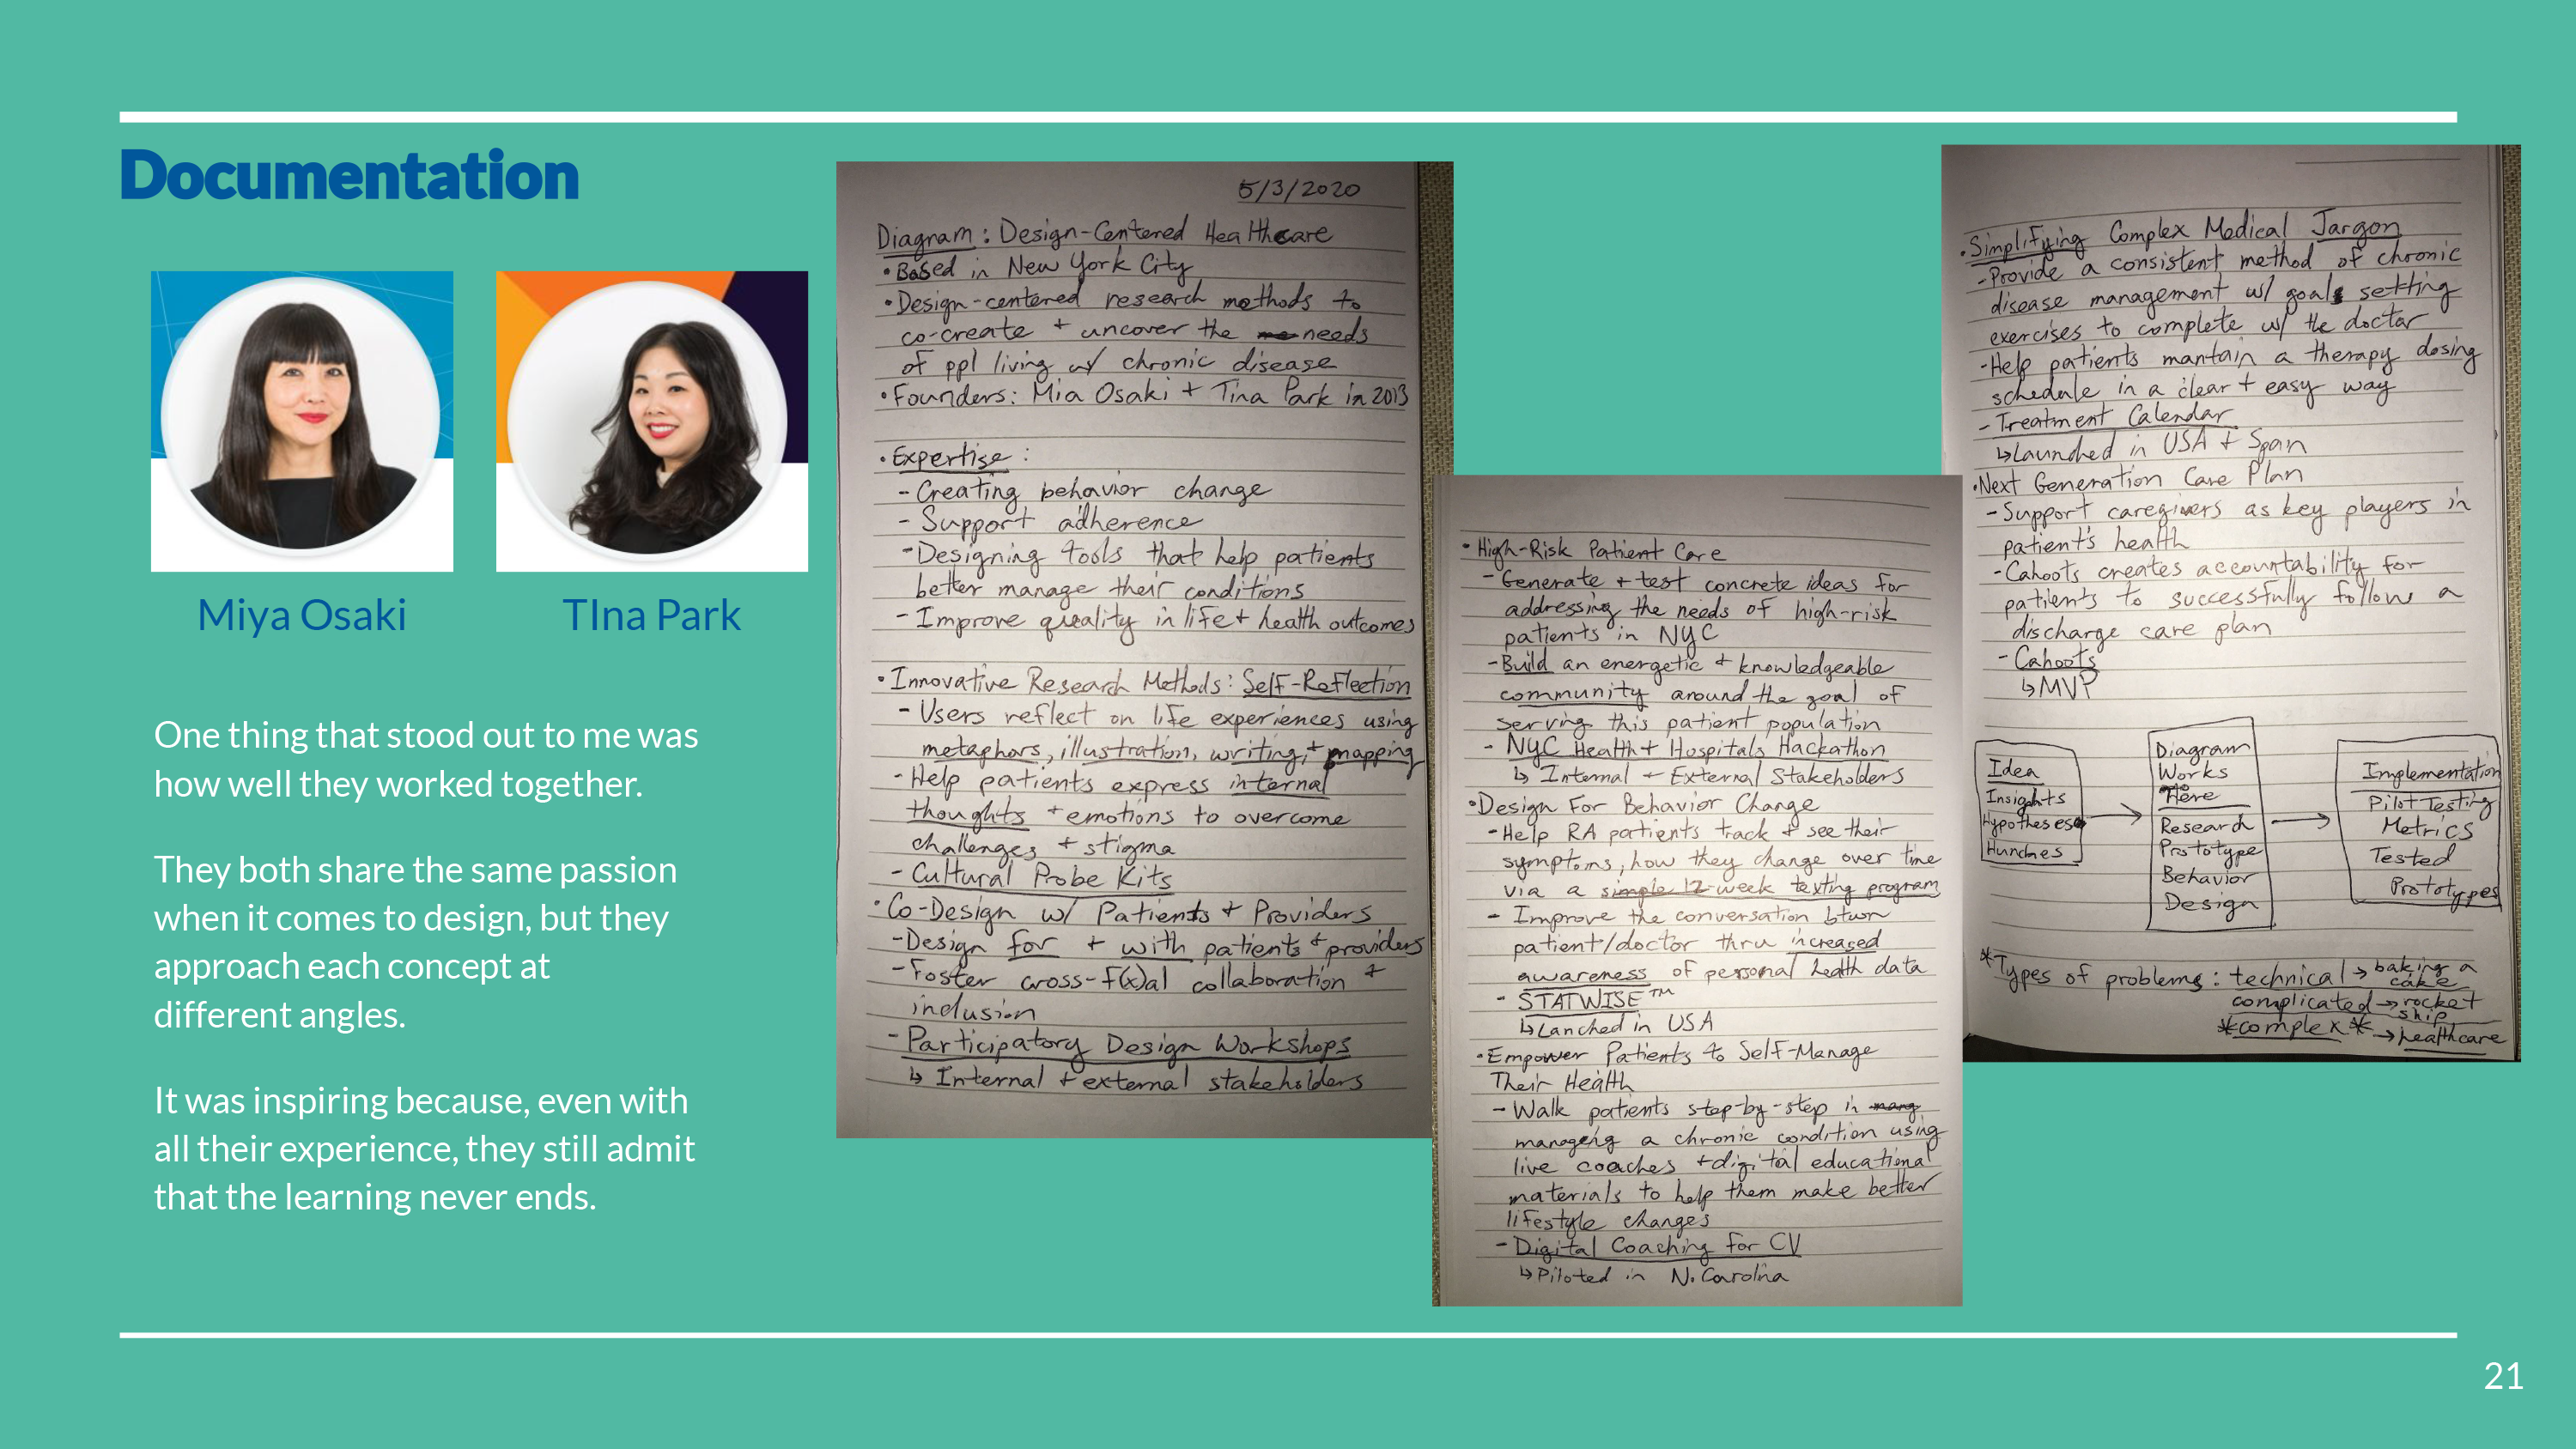 Documentation
Miya Osaki
TIna Park
One thing that stood out to me was
how well they worked together.
They both share the same passion
when it comes to design, but they
approach each concept at
different angles.
It was inspiring because, even with
all their experience, they still admit
that the learning never ends.
5/3/2020
Diagram: Design-Centered Healthcare
•Based in New York City
•Design-centered research methods to
co-create + uncover the needs
of ppl living w/ chronic disease
•Founders: Mia Osaki + Tina Park in 2013
•Expertise:
-Creating behavior change
-Support adherence
-Designing tools that help patients
better manage their conditions
-Improve quality in life + health outcomes
•Innovative Research Methods: Self-Reflection
-Users reflect on life experiences using
metaphors, illustration, writing, + mapping
-Help patients express internal
thoughts + emotions to overcome
challenges + stigma
-Cultural Probe Kits
•Co-Design w/ Patients + Providers
-Design for + with patients + providers
-Foster cross-f(x)al collaboration +
inclusion
-Participatory Design Workshops
↳ Internal + external stakeholders
•High-Risk Patient Care
-Generate + test concrete ideas for
addressing the needs of high-risk
patients in NYC
-Build an energetic + knowledgeable
community around the goal of
serving this patient population
-NYC Health + Hospitals Hackathon
↳ Internal + External Stakeholders
•Design For Behavior Change
-Help RA patients track + see their
symptoms, how they change over time
via a simple 12-week texting program
-Improve the conversation btwn
patient/doctor thru increased
awareness of personal health data
-STATWISE™
↳Lanched in USA
•Empower Patients to Self-Manage
Their Health
-Walk patients step-by-step in
manageing a chronic condition using
live coaches + digital educational
materials to help them make better
lifestyle changes
-Digital Coaching for CV
↳Piloted in N. Carolina
•Simplifying Complex Medical Jargon
-Provide a consistent method of chronic
disease management w/ goals setting
exercises to complete w/ the doctor
-Help patients mantain a therapy dosing
schedule in a clear + easy way
-Treatment Calendar
↳Launched in USA + Span
•Next Generation Care Plan
-Support caregivers as key players in
patient's health
-Cahoots creates accountability for
patients to successfully follow a
discharge care plan
-Cahoots
↳MVP
Idea
Insights
Hypotheses
Hunches
Diagram
Works
Here
Research
Prototype
Behavior
Design
Implementation
Pilot Testing
Metrics
Tested
Prototypes
*Types of problems: technical → baking a
cake
complicated → rocket
ship
*complex* → healthcare
21